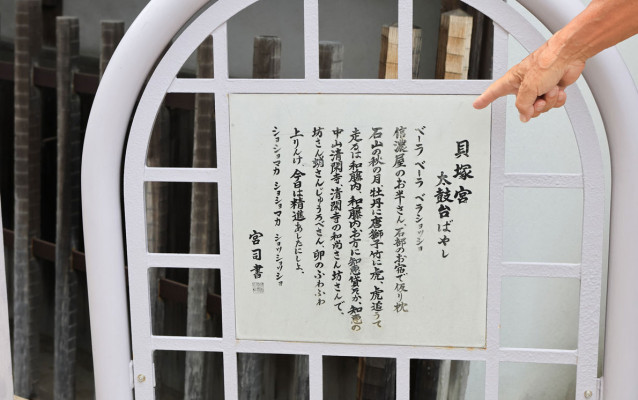 貝塚宮
太鼓台ばやし
ベーラ ベーラ ベラショッショ
信濃屋のお半さん、石部のお宿で仮り枕
石山の秋の月、牡丹に唐獅子竹に虎、虎追うて
走るは和藤内、和藤内お方に知恵貸そか、知恵の
中山清閑寺、清閑寺の和尚さん坊さんで、
坊さん蛸さんじゅうろざさん、卯のふわふわ
上りんけ、今日は精進あしたにしよ、
ショショマカ ショショマカ ショッショッショ
宮司書